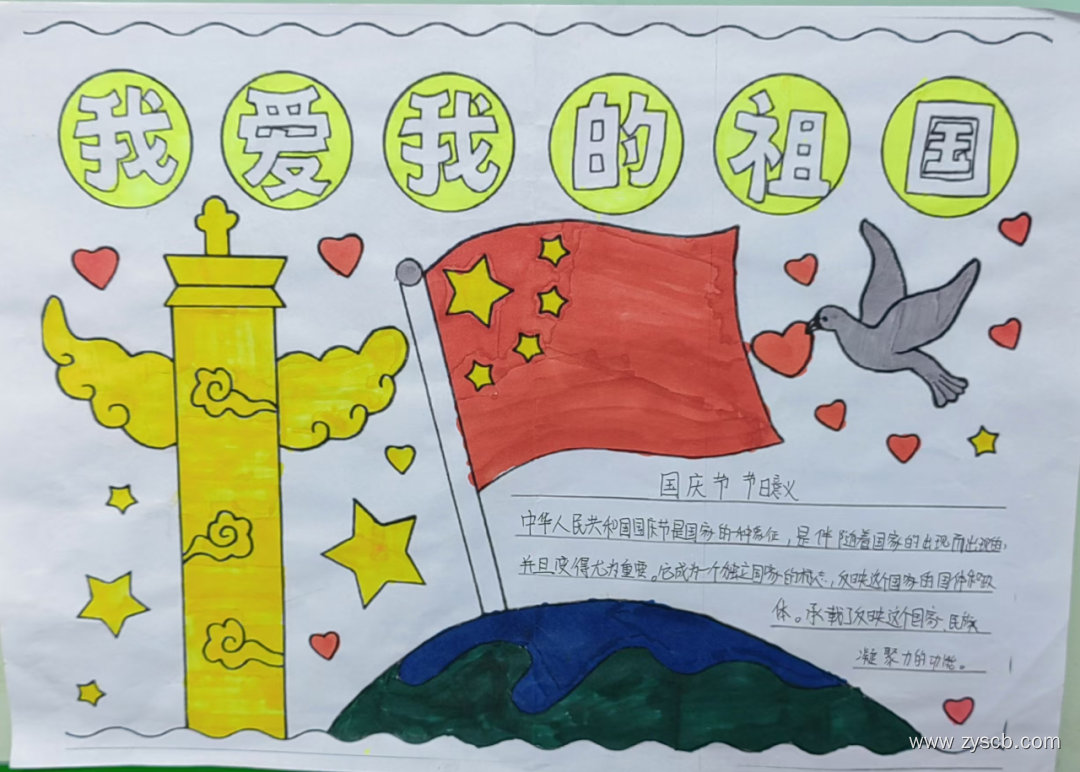 我爱我的祖国
国庆节 节日意义
中华人民共和国国庆节是国家的一种象征,是伴随着国家的出现而出现的,
并且变得尤为重要。它成为一个独立国家的标志,反映这个国家的国体和政
体。承载了反映这个国家、民族
凝聚力的功能。
www.zyscb.com